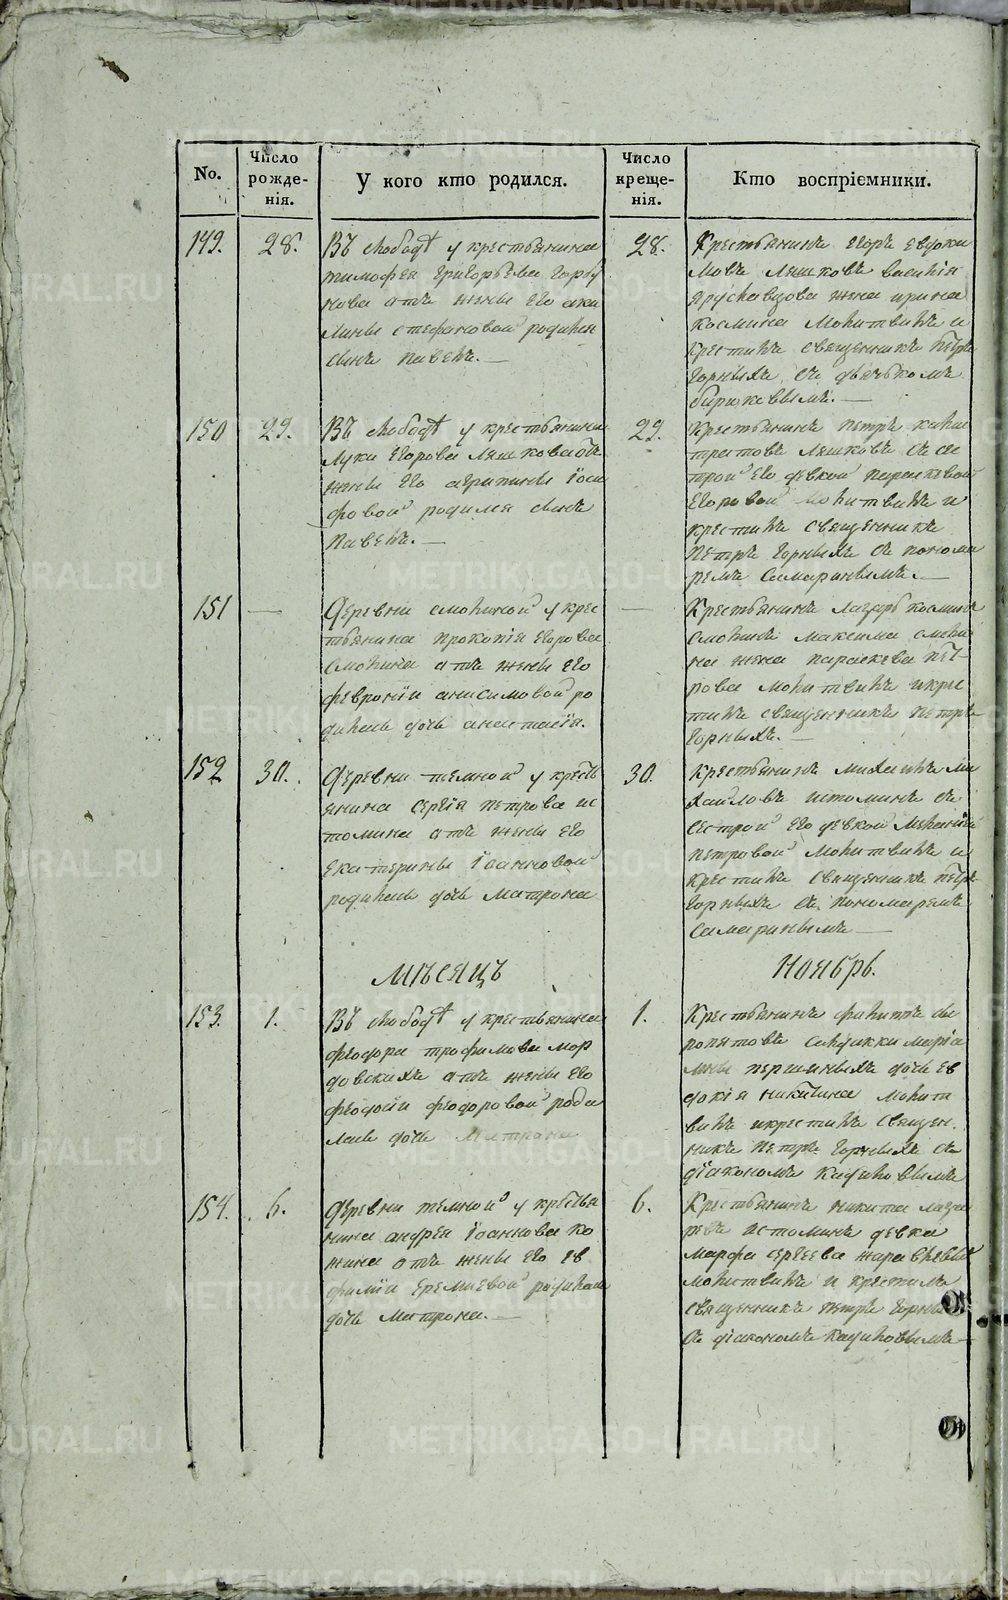 No.
Число рожде-нія.
У кого кто родился.
Число креще-нія.
Кто воспріемники.
149.
28.
Въ слободѣ у крестьянина
тимофея Григорьева Горбу
нова отъ жены его аки
лины стефановой родился
сынъ Павелъ.
28.
Крестьянинъ Егоръ Евдоки
мовъ Ляшковъ
жена ирина
космина молитвилъ и
крестилъ священникъ Петръ
Горныхъ съ дьячькомъ
150
29.
Въ слободѣ у крестьянина
Луки Егорова Ляшкова отъ
жены его агрипины Іоси
фовой родился сынъ
Павелъ.
29.
Крестьянинъ Петръ
Ляшковъ съ сес
трой его девкой параскевой
Егоровой молитвилъ и
крестилъ священникъ
Петръ Горныхъ съ понома
ремъ Самаринымъ.
151
—
Деревни смолиной у крес
тьянина прокопія Егорова
Смолина отъ жены его
февроніи анисимовой ро
дилась дочь анастасія.
—
Крестьянинъ Лазарь космин
Смолинъ максима смоли
на жена параскева пет
рова молитвилъ и крес
тилъ священникъ Петръ
Горныхъ.
152
30.
Деревни темной у кресть
янина Сергія Петрова ис
томина отъ жены его
екатерины Іоанновой
родилась дочь Матрона
30.
Крестьянинъ михаилъ ми
хайловъ истоминъ съ
сестрой его девкой меланіей
петровой молитвилъ и
крестилъ священникъ Петръ
Горныхъ съ пономаремъ
Самаринымъ
Мѣсяцъ
Ноябрь.
153.
1.
Въ слободѣ у крестьянина
феодора трофимова мор
довскихъ отъ жены его
феодосіи феодоровой роди
лась дочь Матрона
1.
Крестьянинъ
першиныхъ дочь ев
докія никитина молит
вилъ и крестилъ священ
никъ Петръ Горныхъ съ
діакономъ Кадиковымъ
154.
6.
Деревни темной у крестья
нина андрея Іоаннова ко
жина отъ жены его ев
фиміи еремиевой родилась
дочь Матрона.
6.
Крестьянинъ никита лаза
ревъ истоминъ девка
марфа сергеева
молитвилъ и крестилъ
священникъ Петръ Горныхъ
съ діакономъ Кадиковымъ
METRIKI.GASO-URAL.RU